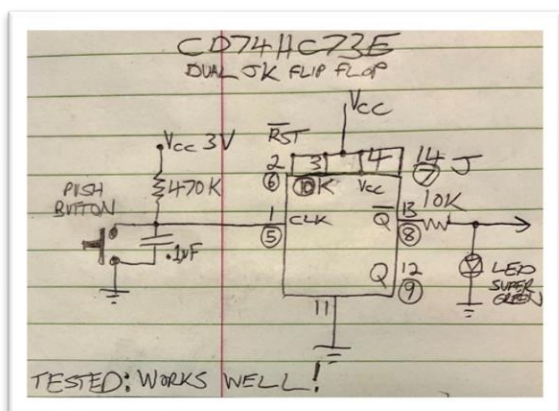 CD74HC73E
DUAL JK FLIP FLOP
Vcc
Vcc 3V
RST
2 3 4 14 J
6 10 K Vcc 7
470K
PUSH
BUTTON
1 CLK
5
.1uF
Q 13 10K
8
Q 12
9
LED
SUPER
GREEN
11
TESTED: WORKS WELL!